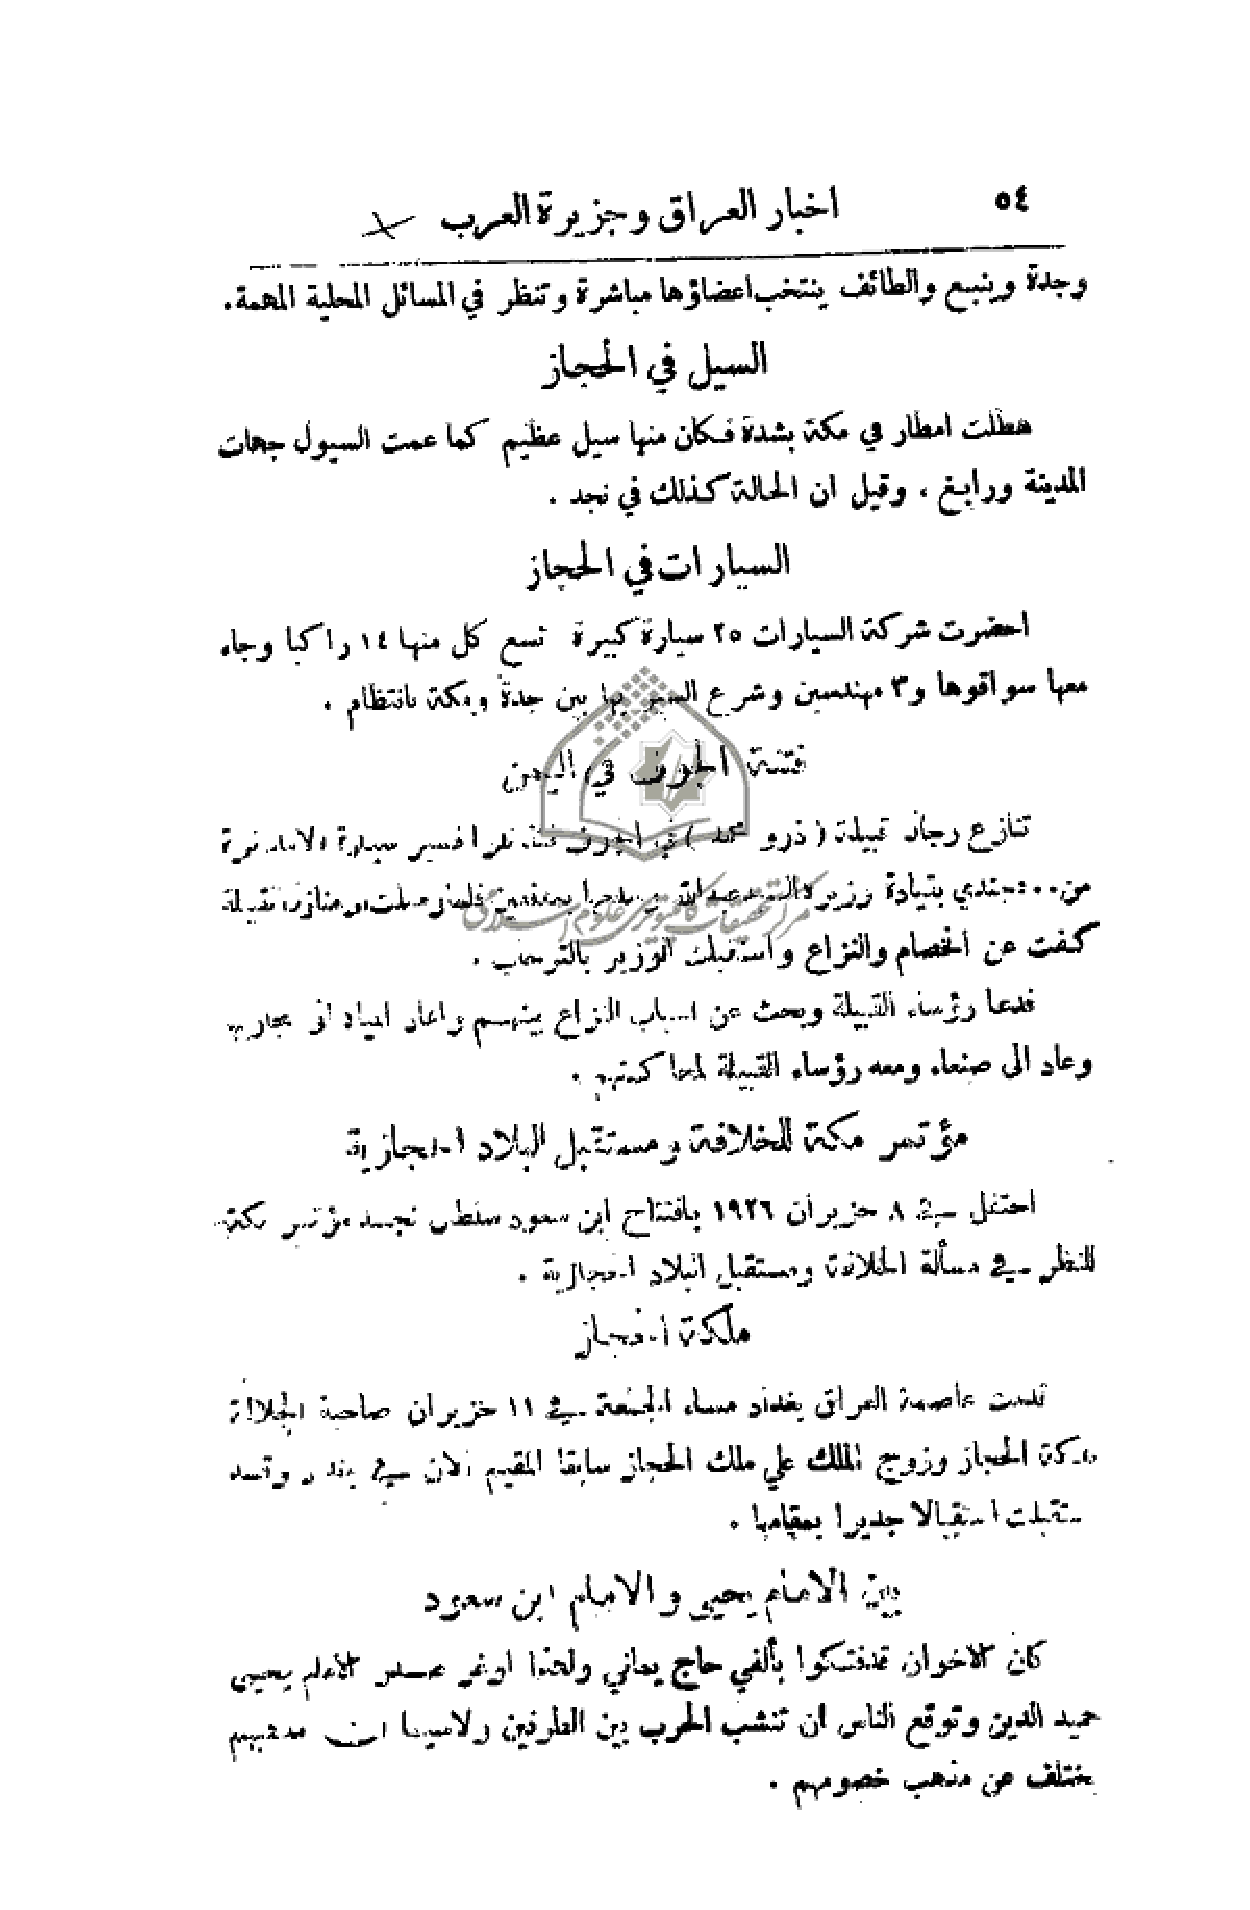 ٥٤
اخبار العراق وجزيرة العرب
وجدة وينبع والطائف ينتخب اعضاؤها مباشرة وتنظر في المسائل المحلية المهمة.
السيل في الحجاز
هطلت امطار في مكة بشدة فكان منها سيل عظيم كما عمت السيول جهات
المدينة ورابغ ، وقيل ان الحالة كذلك في نجد .
السيارات في الحجاز
احضرت شركة السيارات ٢٥ سيارة كبيرة تسع كل منها ١٤ راكبا وجاء
معها سواقوها و٣ مهندسين وشرع السير بها بين جدة ومكة بانتظام .
فتنة الجوف في اليمن
تنازع رجال قبيلة ( ذرو محمد ) في الجوف
من ٠٠ جندي بقيادة وزيره السيد عبدالله
كفت عن الخصام والنزاع واستقبلت الوزير بالترحاب .
فدعا رؤساء القبيلة وبحث عن اسباب النزاع بينهم واعاد المياه الى مجاريها
وعاد الى صنعاء ومعه رؤساء القبيلة لمحاكمتهم .
مؤتمر مكة للخلافة ومستقبل البلاد الحجازية
احتفل في ٨ حزيران ١٩٢٦ بافتتاح ابن سعود سلطان نجد مؤتمر مكة
للنظر في مسألة الخلافة ومستقبل البلاد الحجازية .
ملكة الحجاز
قدمت عاصمة العراق بغداد مساء الجمعة في ١١ حزيران صاحبة الجلالة
ملكة الحجاز وزوج الملك علي ملك الحجاز سابقا المقيم الآن في بغداد وقد
ستقبلت استقبالا جديرا بمقامها .
بين الامام يحيى والامام ابن سعود
كان الاخوان قد فتكوا بألفي حاج يماني ولهذا اوغر صدر الامام يحيى
حميد الدين وتوقع الناس ان تنشب الحرب بين الطرفين ولاسيما ان مذهبهم
يختلف عن مذهب خصومهم .